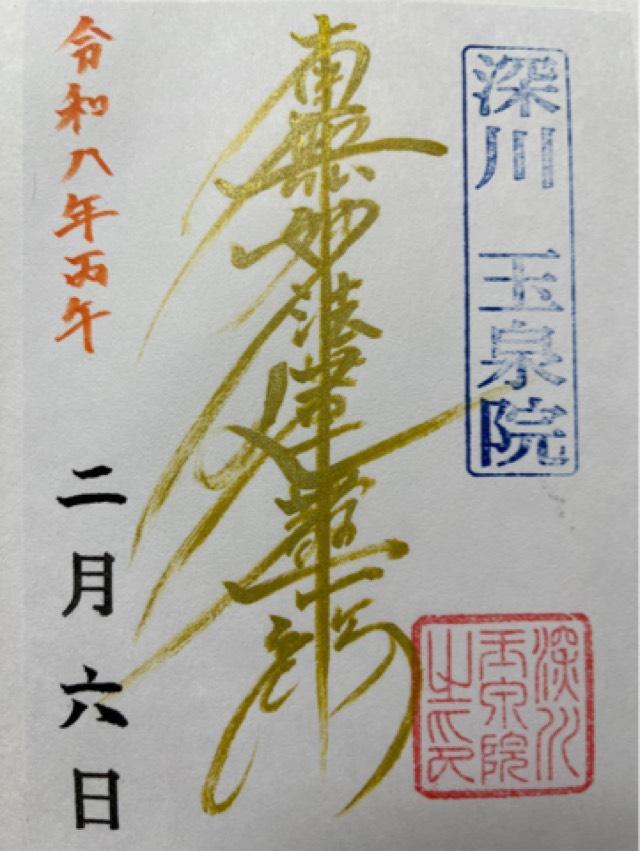 深川 玉泉院
深川
玉泉院
之印
南無妙法蓮華経
令和八年丙午
二月六日